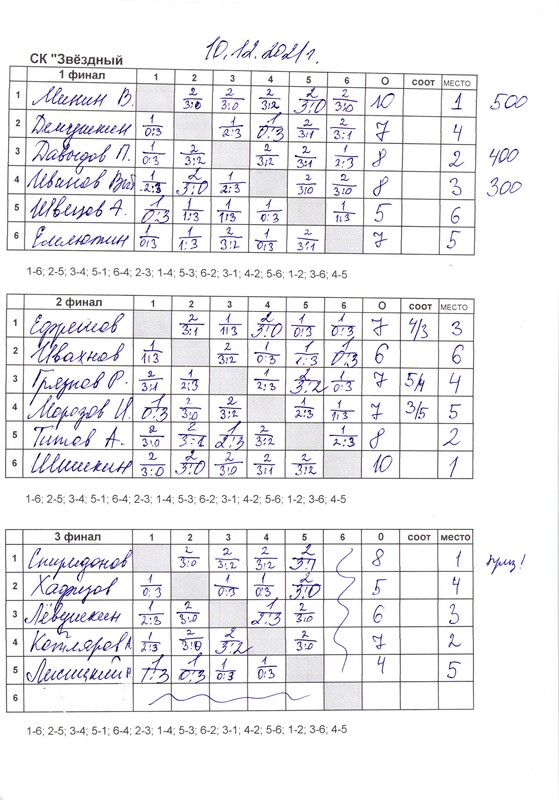 СК "Звёздный 10.12.2021г.
1 финал 1 2 3 4 5 6 О соот место
1 Минин В. 2 3:0 2 3:0 2 3:2 2 3:0 2 3:0 10 1 500
2 1 0:3 1 2:3 1 0:3 2 3:1 2 3:1 7 4
3 Давыдов П. 1 0:3 2 3:2 2 3:2 2 3:1 1 2:3 8 2 400
4 Иванов 1 2:3 2 3:0 1 2:3 2 3:0 2 3:0 8 3 300
5 Швецов А. 1 0:3 1 1:3 1 1:3 1 0:3 1 1:3 5 6
6 Емелютин 1 0:3 1 1:3 2 3:2 1 0:3 2 3:1 7 5
1-6; 2-5; 3-4; 5-1; 6-4; 2-3; 1-4; 5-3; 6-2; 3-1; 4-2; 5-6; 1-2; 3-6; 4-5
2 финал 1 2 3 4 5 6 О соот место
1 Ефремов 2 3:1 1 1:3 2 3:0 1 0:3 1 0:3 7 4/3 3
2 Ивахнов 1 1:3 2 3:2 1 0:3 1 1:3 1 0:3 6 6
3 Грязнов Р. 2 3:1 1 2:3 1 2:3 2 3:2 1 0:3 7 5/4 4
4 Морозов И. 1 0:3 2 3:0 2 3:2 1 2:3 1 1:3 7 3/5 5
5 Титов А. 2 3:0 2 3:1 1 2:3 2 3:2 1 2:3 8 2
6 Шишкин 2 3:0 2 3:0 2 3:0 2 3:1 2 3:2 10 1
1-6; 2-5; 3-4; 5-1; 6-4; 2-3; 1-4; 5-3; 6-2; 3-1; 4-2; 5-6; 1-2; 3-6; 4-5
3 финал 1 2 3 4 5 6 0 соот место
1 Спиридонов 2 3:0 2 3:2 2 3:2 2 3:1 8 1
2 Хафизов 1 0:3 1 0:3 1 0:3 2 3:0 5 4
3 Лёвушкин 1 2:3 2 3:0 1 2:3 2 3:0 6 3
4 Котляров 1 2:3 2 3:0 2 3:2 2 3:0 7 2
5 Лисицкий 1 1:3 1 0:3 1 0:3 1 0:3 4 5
6
1-6; 2-5; 3-4; 5-1; 6-4; 2-3; 1-4; 5-3; 6-2; 3-1; 4-2; 5-6; 1-2; 3-6; 4-5